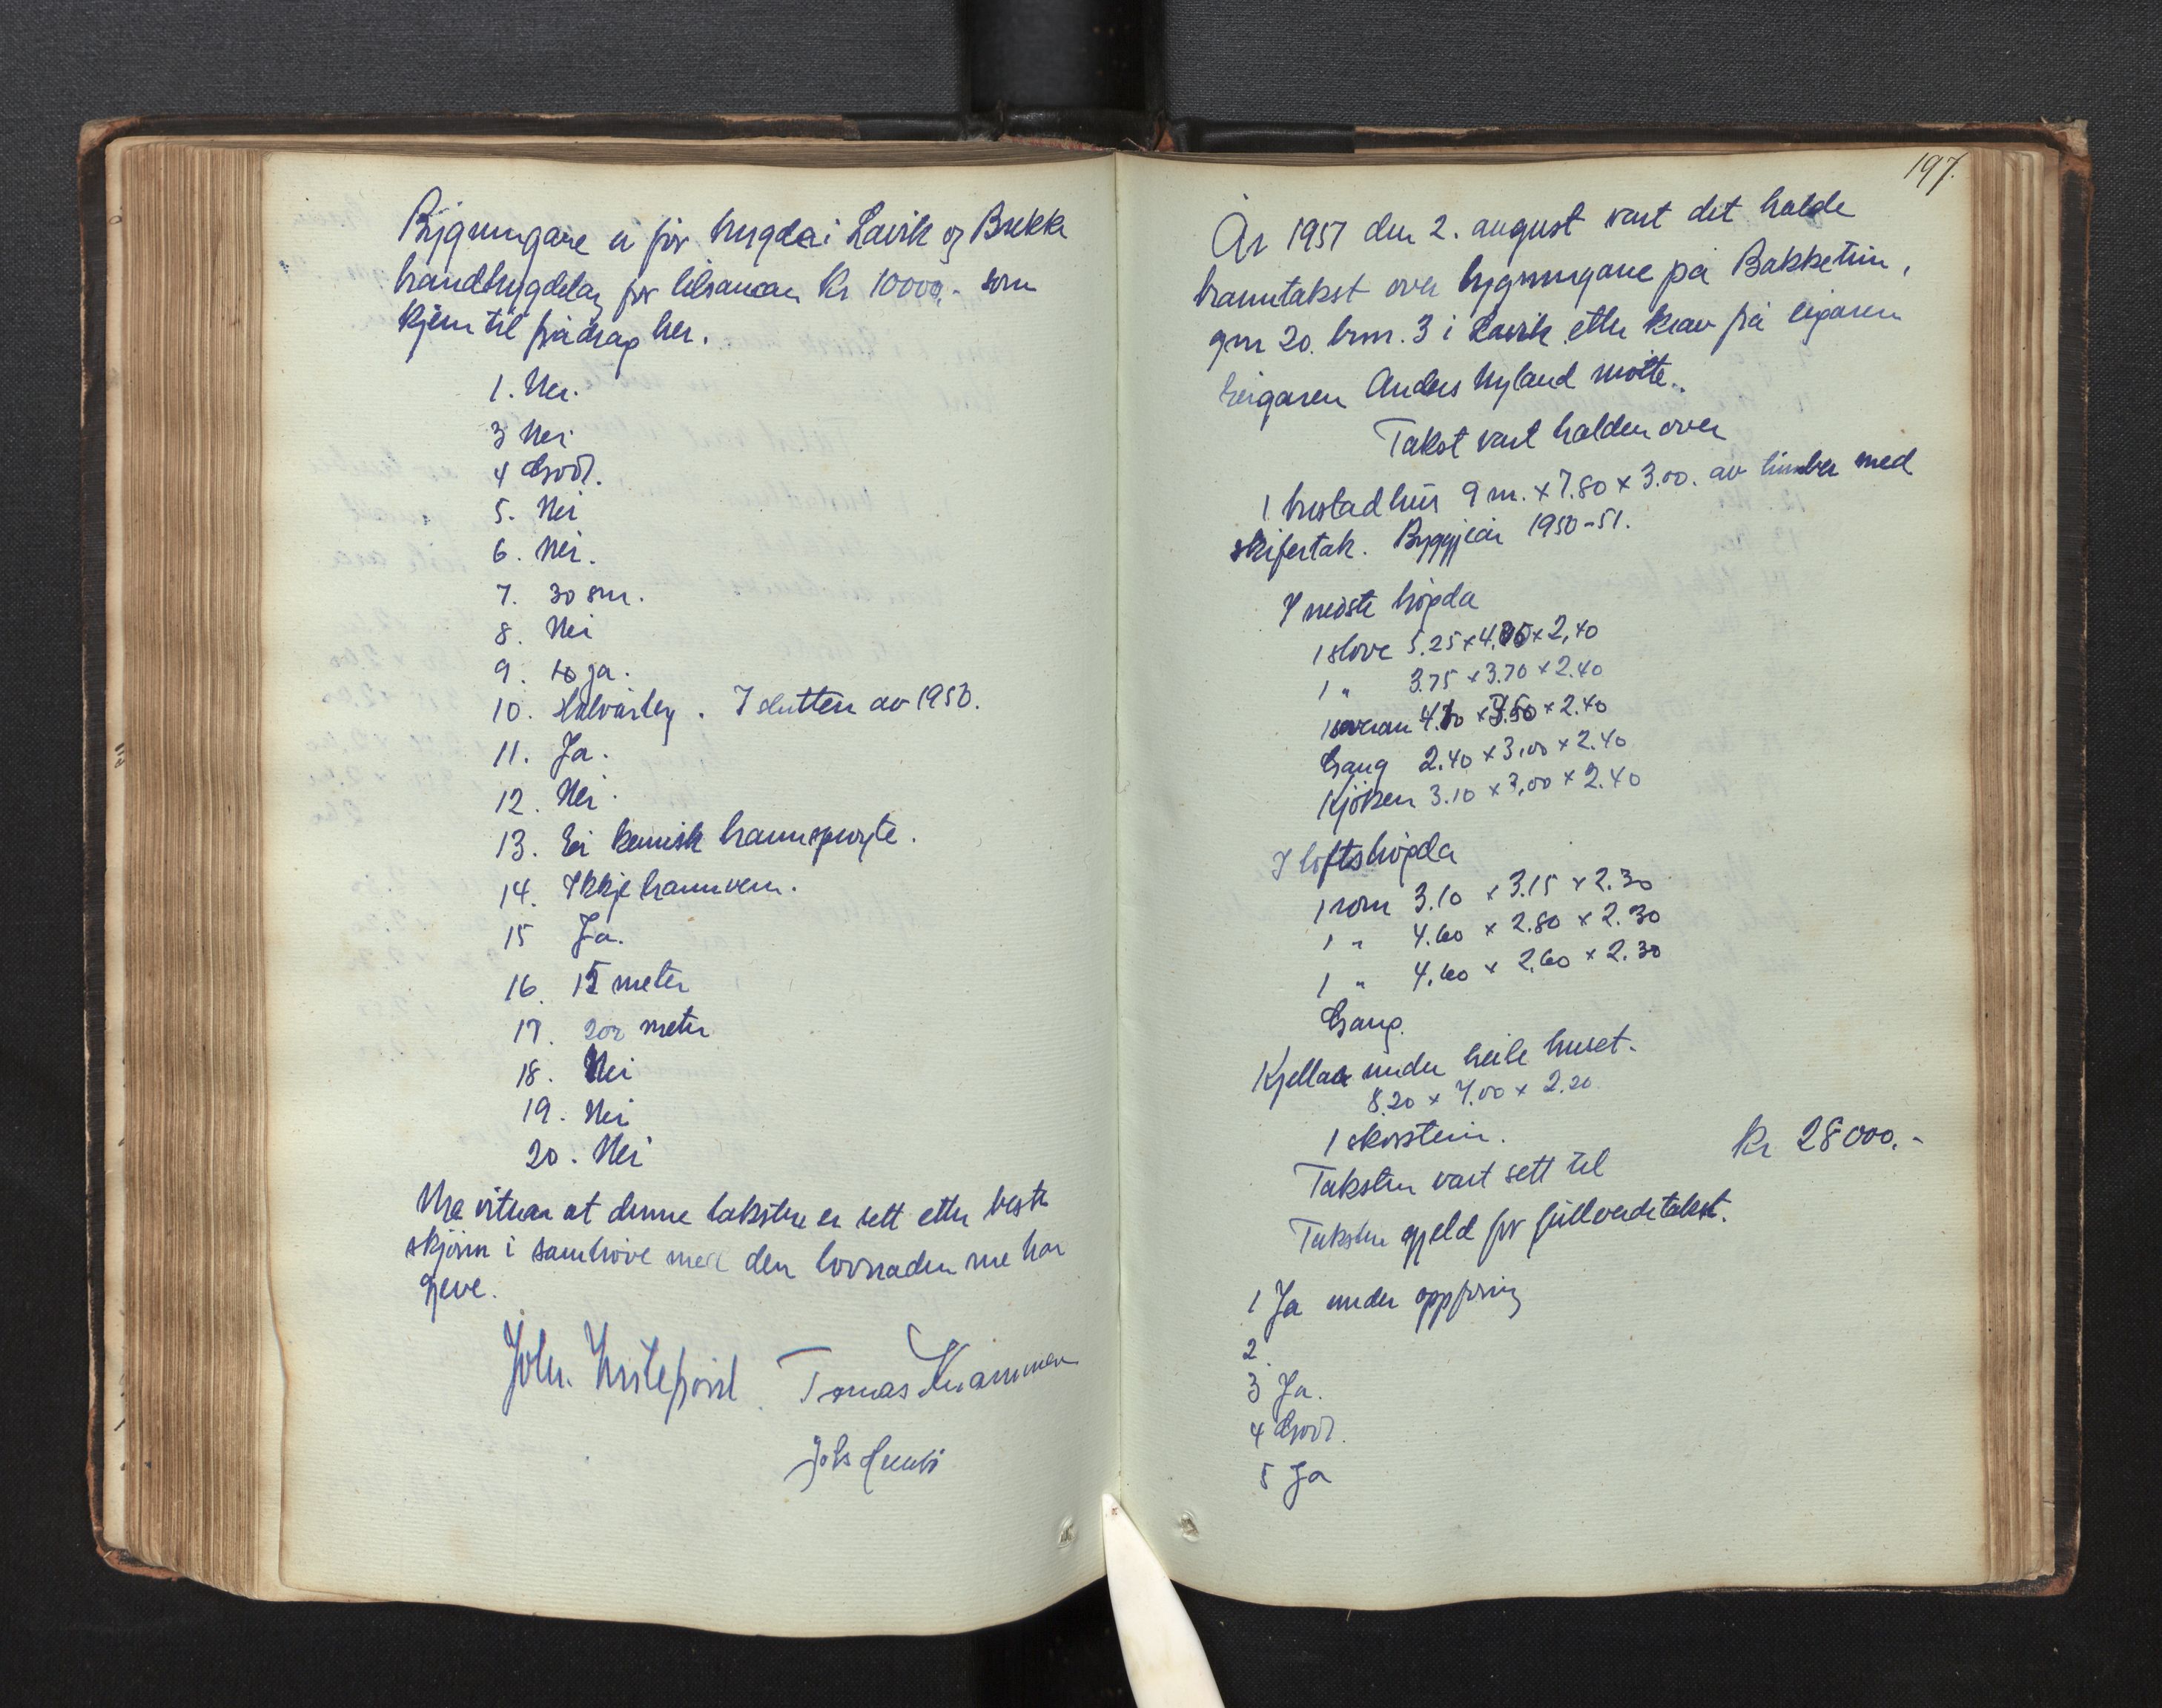 Bygningane er før trygda i Lavik og Brekke
brandtrygdelag for tilsaman kr 10000,- som
kjem til frådrag her.
1. Nei.
3 Nei
4 God.
5. Nei
6. Nei.
7. 30 sm.
8. Nei
9. ja.
10. Halvårleg. I slutten av 1950.
11. Ja.
12. Nei.
13. Ei kemisk brannsprøyte.
14. Ikkje brannvern.
15 Ja.
16. 15 meter
17. 200 meter
18. Nei
19. Nei
20. Nei
Me vitnar at denne taksten er sett etter beste
skjønn i samhøve med den lovnaden me har
gjeve.
Joh. Tomas Kvammen
Johs
197.
År 1951 den 2. august vart det halde
branntakst over bygningane på Bakketun,
gnr 20. brnr. 3 i Lavik etter krav frå eigaren
Eigaren Anders Nyland møtte.
Takst vart halden over
1 bustadhus 9 m. x 7.80 x 3.00. av timber med
skifertak. Byggjeår 1950-51.
I neðste høgda
1 stove 5.25 x 4.35 x 2,40
1 " 3.75 x 3.70 x 2.40
1 x 2.40
Gang 2.40 x 3,00 x 2.40
Kjøken 3.10 x 3,00 x 2.40
I loftshøgda
1 rom 3.10 x 3.15 x 2.30
1 " 4.60 x 2.80 x 2.30
1 " 4.60 x 2.60 x 2.30
Gang.
Kjellar under heile huset.
8.20 x 7.00 x 2.20
1 skorstein.
Taksten vart sett til kr 28000.-
Taksten gjeld for fullverdetakst.
1 Ja under oppføring
2.
3 Ja.
4 God.
5 Ja